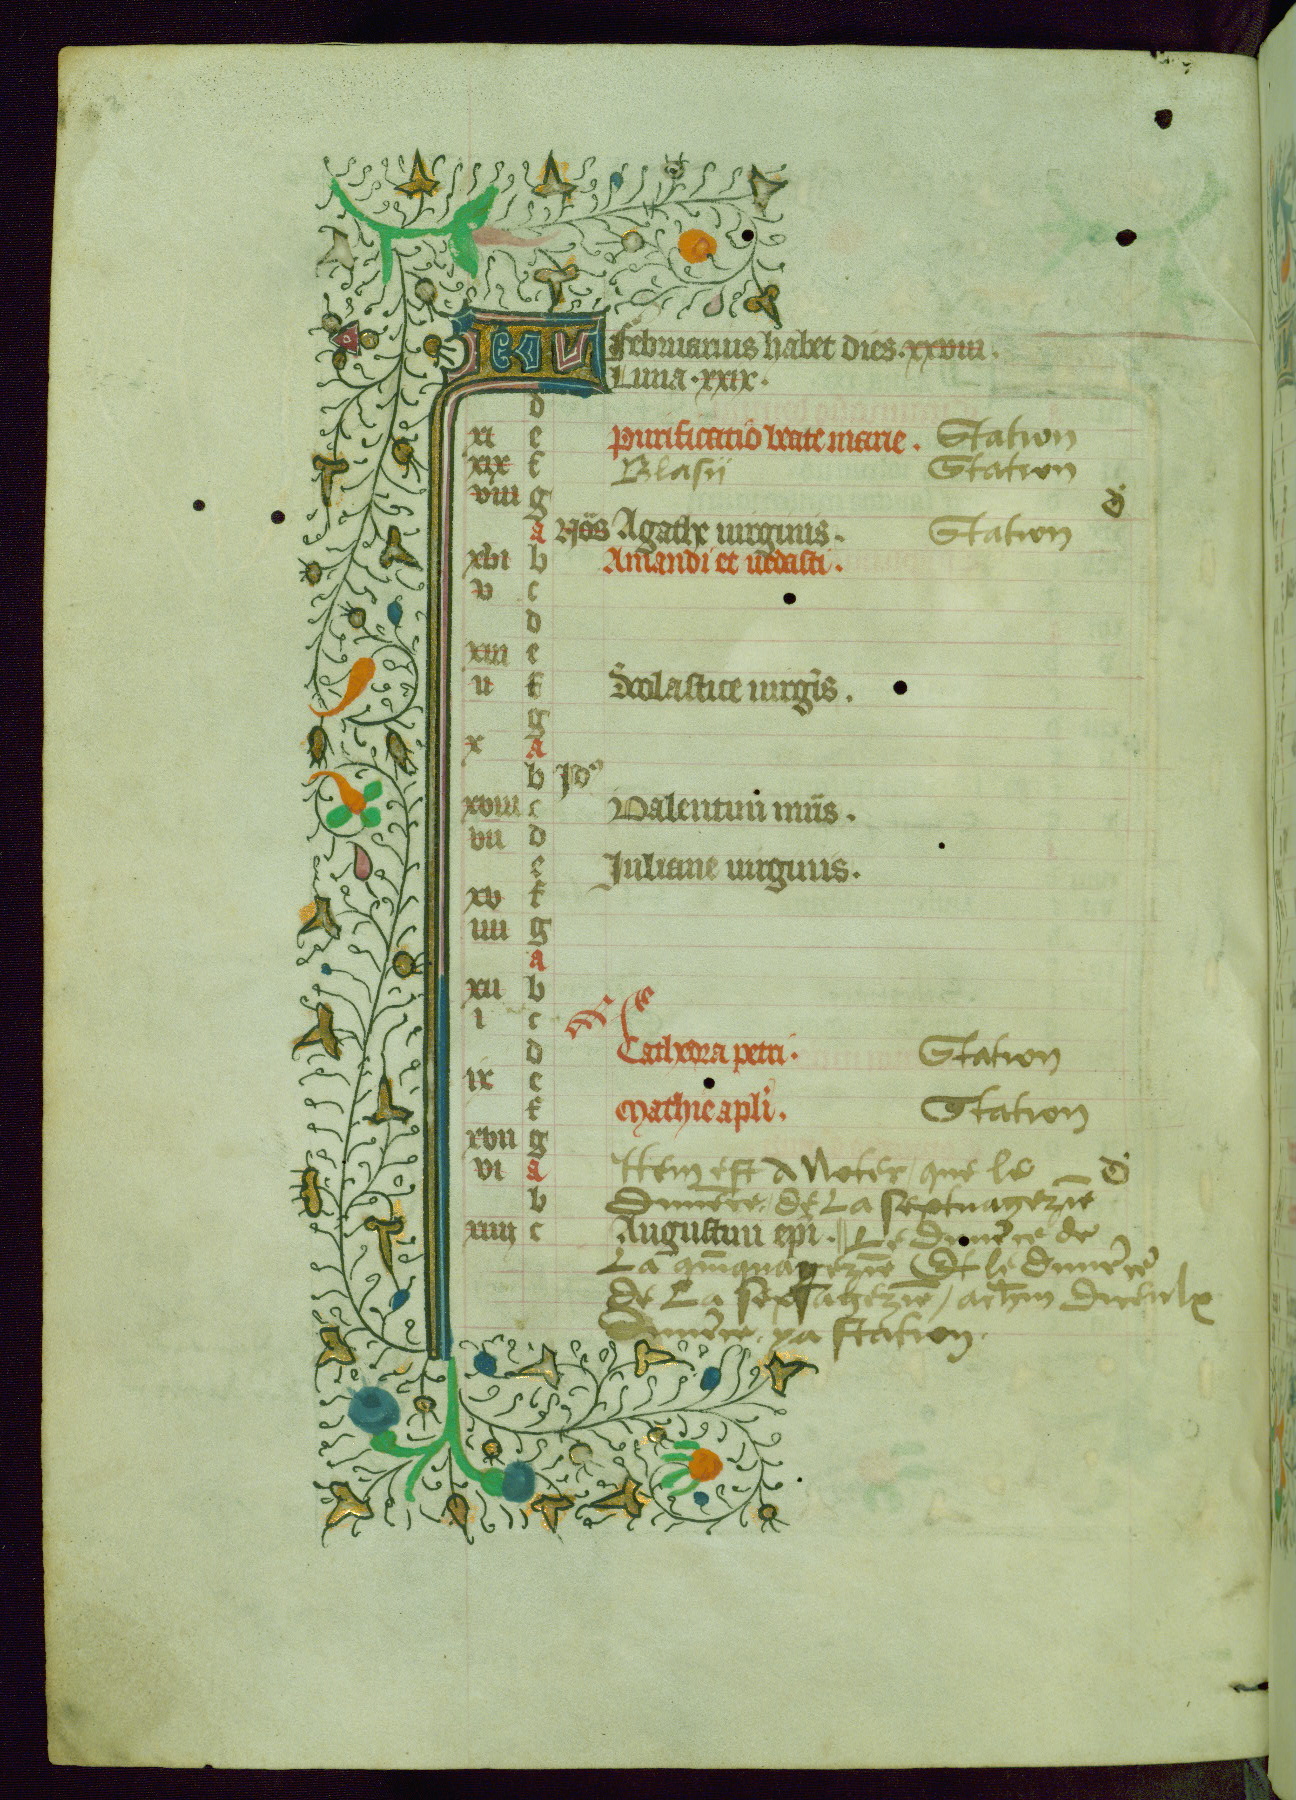 KL Februarius habet dies. xxviii.
Luna. xxix.
d
xi e Purificatio beate marie. Station
xix f Blasii Station
viii g
a Nōs Agathe uirginis. Station
xvi b Amandi et uedasti.
v c
d
xiii e
ii f Scolastice uirgīs.
g
x a
b Idꝰ
xviii c Valentini mr̄is.
vii d
e Juliane uirginis.
xv f
iiii g
a
xii b
i c
d Cathedra petri. Station
ix e
f Mathie apl̄i. Station
xvii g
vi a Item est A Noter, que le
b de La septuagezīe
xiiii c Augustini epi. Le de
La Et le
de La
pa station.